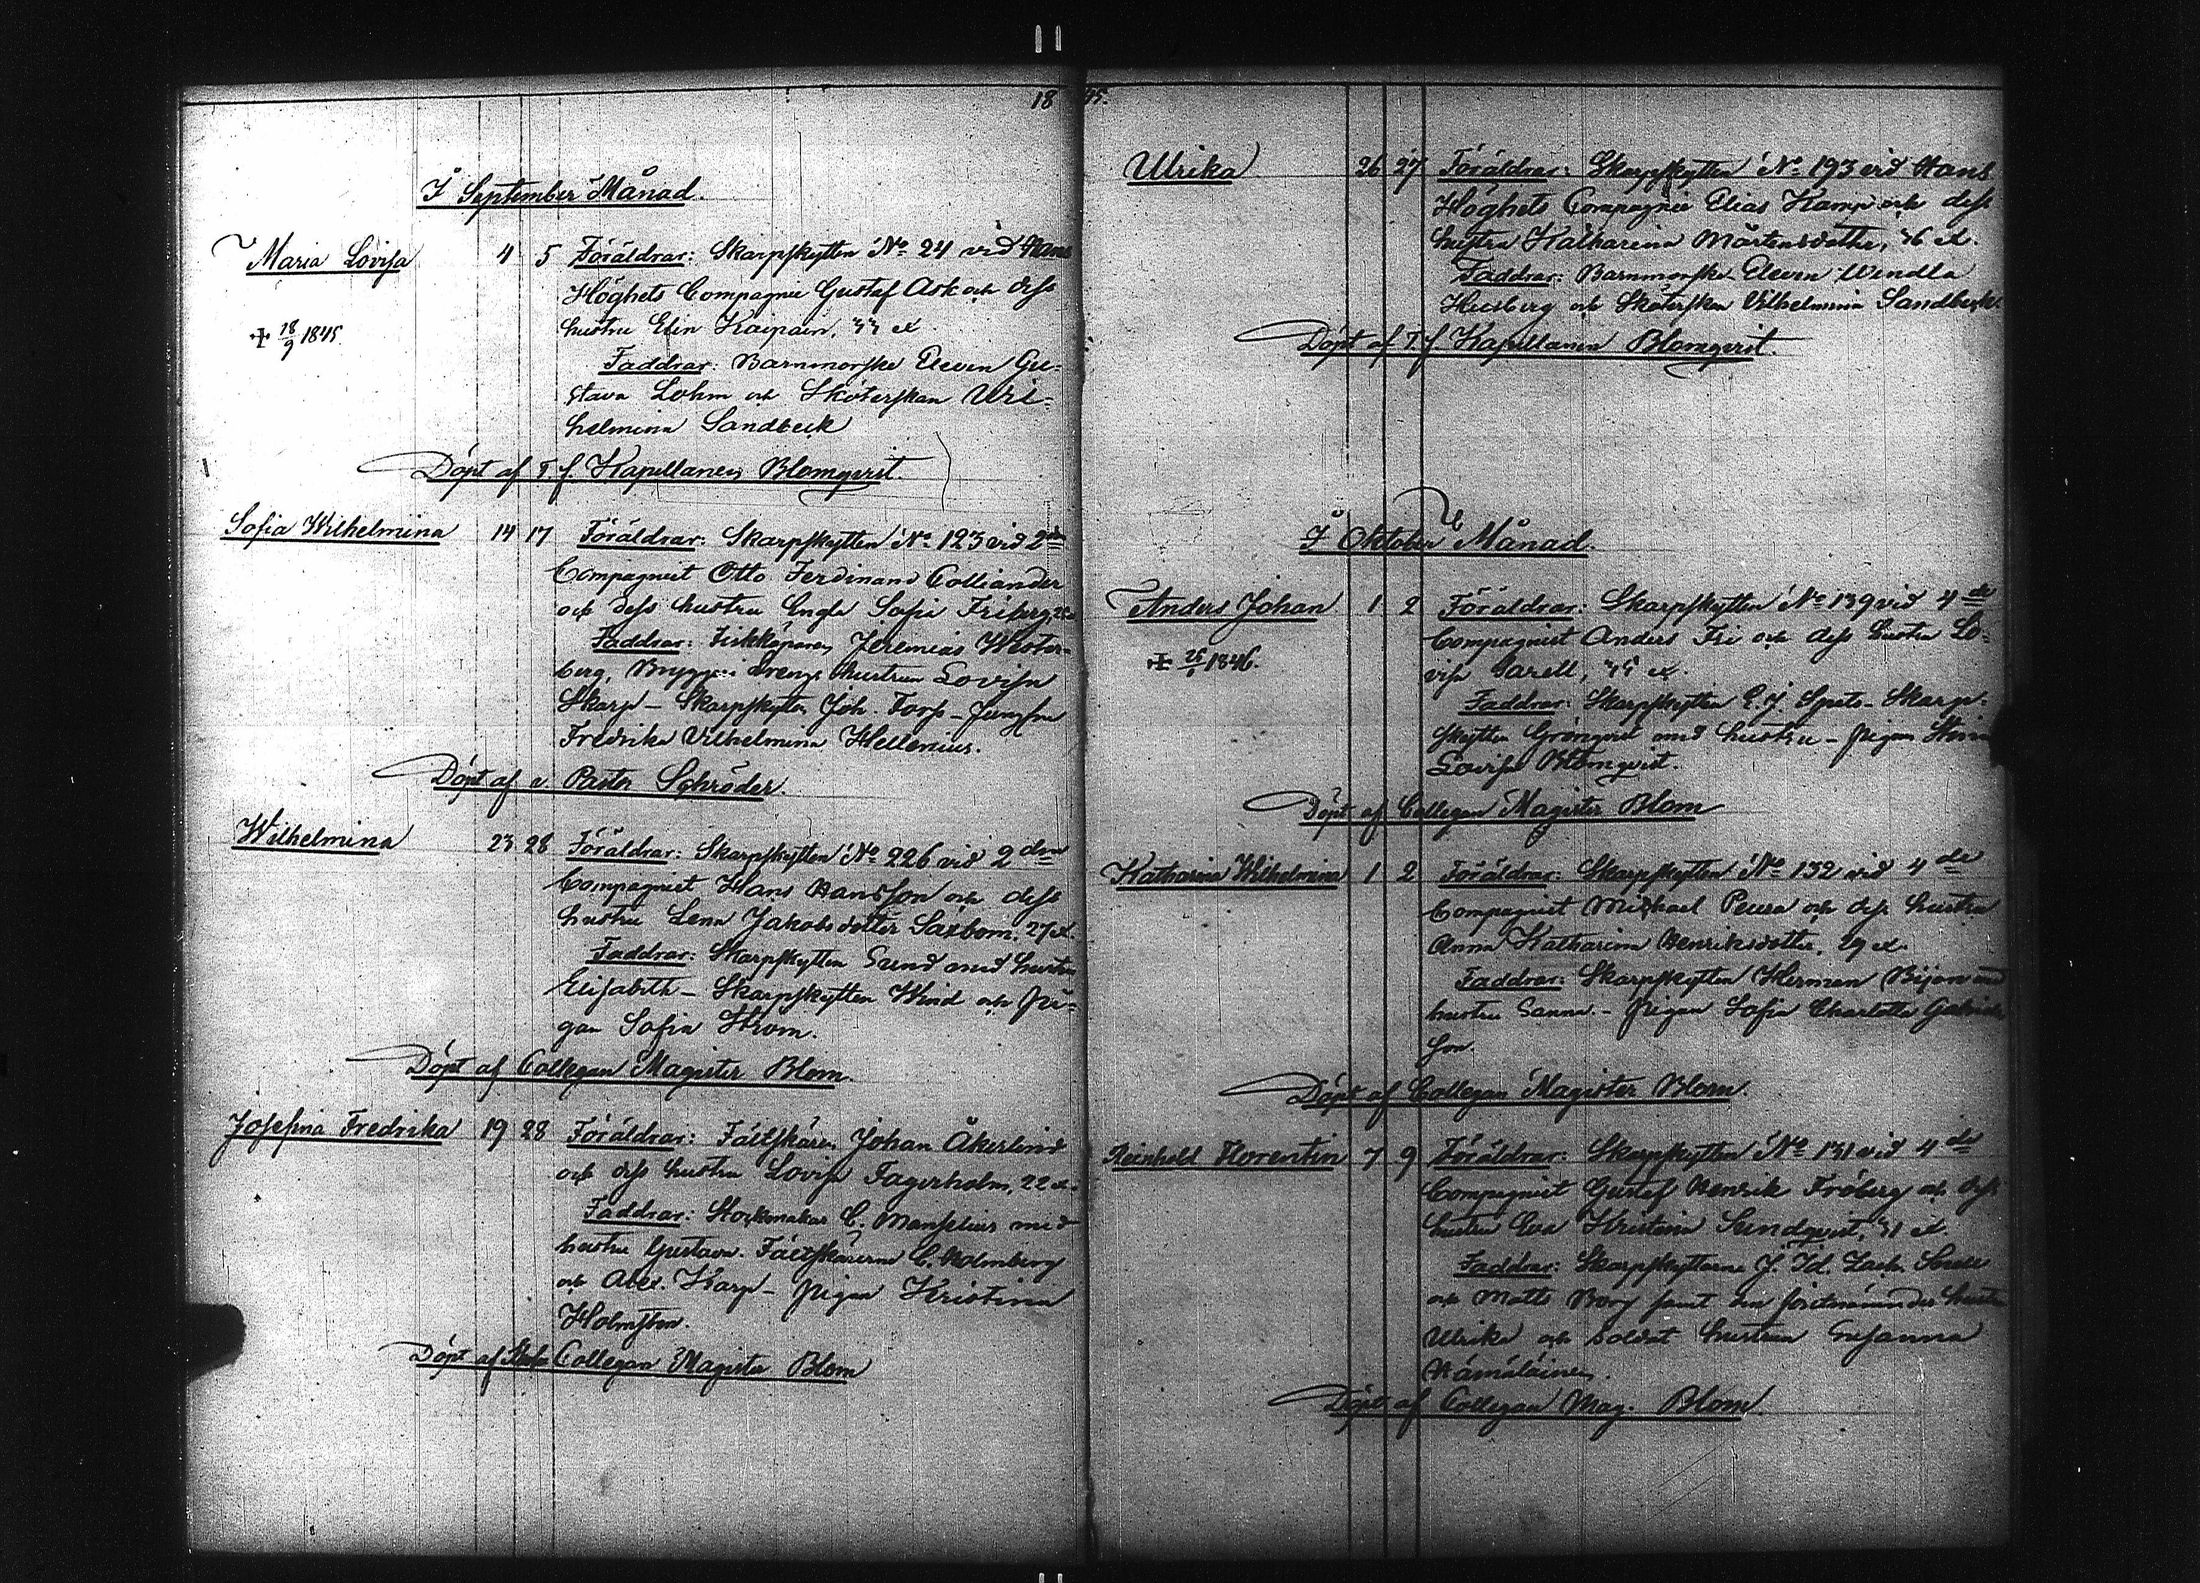 1845.
I September Månad.
Maria Lovisa 4 5 Föräldrar: Skarpskytten No 24 vid Hans
Höghets Compagnie Gustaf Ask och dess
hustru Elin Kaipain, 33 et.
+ 18/9 1845.
Faddrar: Barnmorske Eleven Gu-
stava Lohm och Sköterskan Wil-
helmina Sandbeck
Döpt af T. f. Kapellanen Blomqvist.
Sofia Wilhelmina 14 17 Föräldrar: Skarpskytten No 123 vid 2dra
Compagniet Otto Ferdinand Colliander
och dess hustru Engla Sofia Friberg
Faddrar: Fiskköparen Jeremias Wester-
berg, Bryggeri drengs hustrun Lovisa
Skarp – Skarpskytten Joh. Forss – Jungfru
Fredrika Vilhelmina Hellenius.
Döpt af v. Pastor Schröder.
Wilhelmina 23 28 Föräldrar: Skarpskytten No 226 vid 2dra
Compagniet Hans Hansson och dess
hustru Lena Jakobsdotter Saxbom, 27 et.
Faddrar: Skarpskytten Sund med hustru
Elisabeth – Skarpskytten Wind och Pi-
gan Sofia Strom.
Döpt af Collegan Magister Blom.
Josefina Fredrika 19 28 Föräldrar: Fältskären Johan Åkerlind
och dess hustru Lovisa Fagerholm, 22 et.
Faddrar: C. Manselius med
hustru Gustava. Fältskärerne C. Holmberg
och Alex. Karp – Pigan Kristina
Holmsten.
Döpt af Collegan Magister Blom
Ulrika 26 27 Föräldrar: Skarpskytten No 193 vid Hans
Höghets Compagnie Elias Kamp och dess
hustru Katharina Mårtensdotter, 36 et.
Faddrar: Barnmorske Eleven Wendla
Husberg och Sköterskan Vilhelmina Sandbeck.
Döpt af T. f. Kapellanen Blomqvist.
I Oktober Månad.
Anders Johan 1 2 Föräldrar: Skarpskytten No 139 vid 4de
Compagniet Anders Fri och dess hustru Lo-
visa Sarell, 35 et.
+ 1846.
Faddrar: Skarpskytten E. J. Spets – Skarp-
skytten Grönqvist med hustru – Pigan Stina
Lovisa Blomqvist.
Döpt af Collegan Magister Blom
Katharina Wilhelmina 1 2 Föräldrar: Skarpskytten No 132 vid 4de
Compagniet Michael Peura och dess hustru
Anna Katharina Henriksdotter, 29 et.
Faddrar: Skarpskytten Herman Björn med
hustru Sanna – Pigan Sofia Charlotta Gabriels-
son.
Döpt af Collegan Magister Blom.
Reinhold Florentin 7 9 Föräldrar: Skarpskytten No 131 vid 4de
Compagniet Gustaf Henrik Fröberg och dess
hustru Eva Kristina Sundqvist, 31 et.
Faddrar: Skarpskytterne J. Id. Zach.
och Matts Borg samt den förstnämndes hustru
Ulrika och Soldat hustrun Susanna
Hämäläinen.
Döpt af Collegan Mag. Blom